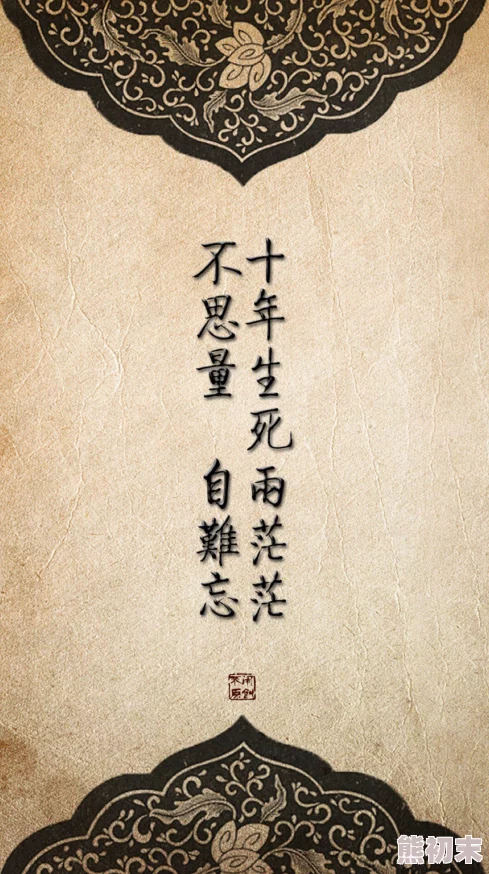 十年生死兩茫茫
不思量 自難忘
熊初末